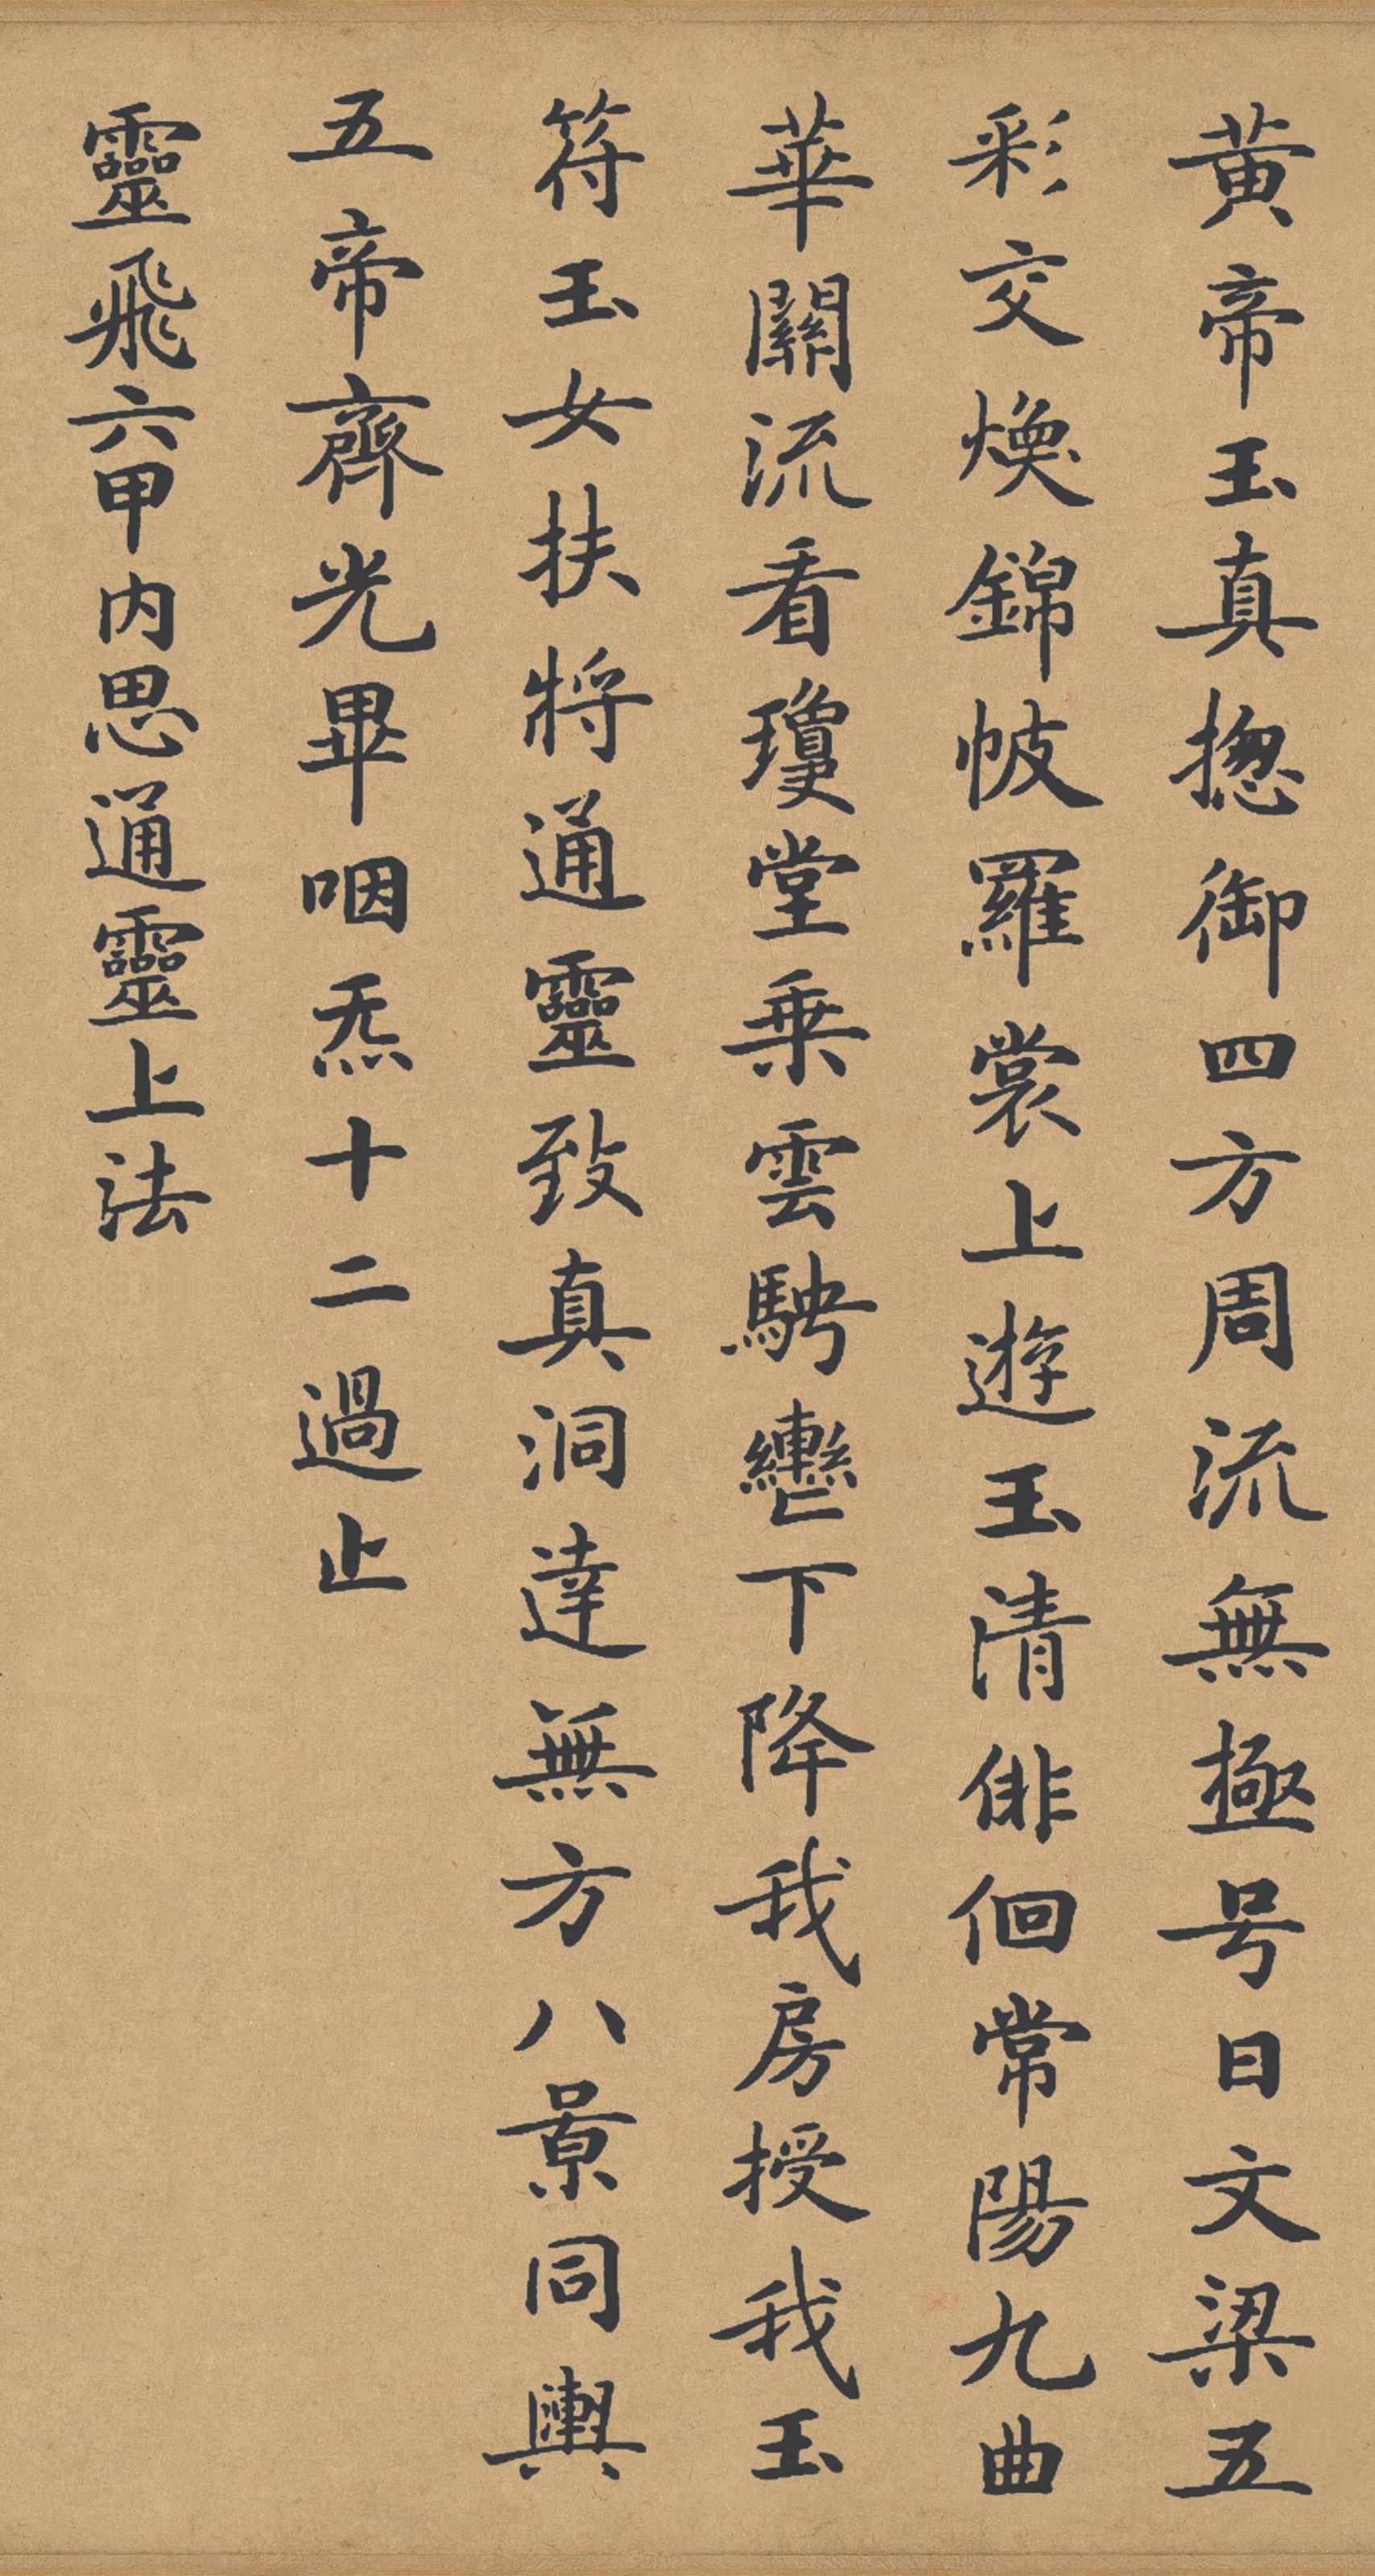 黃帝玉真揔御四方周流無極号曰文梁五
彩交煥錦帔羅裳上遊玉清俳佪常陽九曲
華關流看瓊堂乗雲騁轡下降我房授我玉
符玉女扶將通靈致真洞達無方八景同輿
五帝齊光畢咽炁十二過止
靈飛六甲內思通靈上法